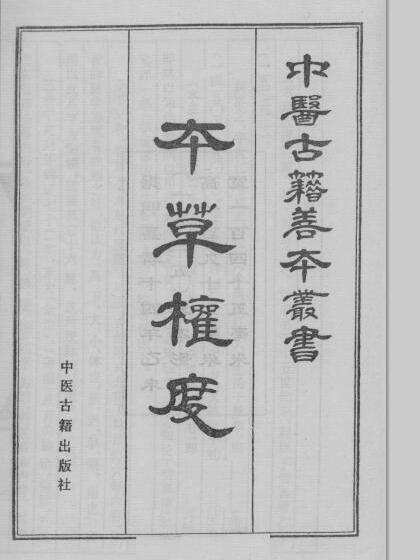 中醫古籍善本叢書
本草權度
中医古籍出版社